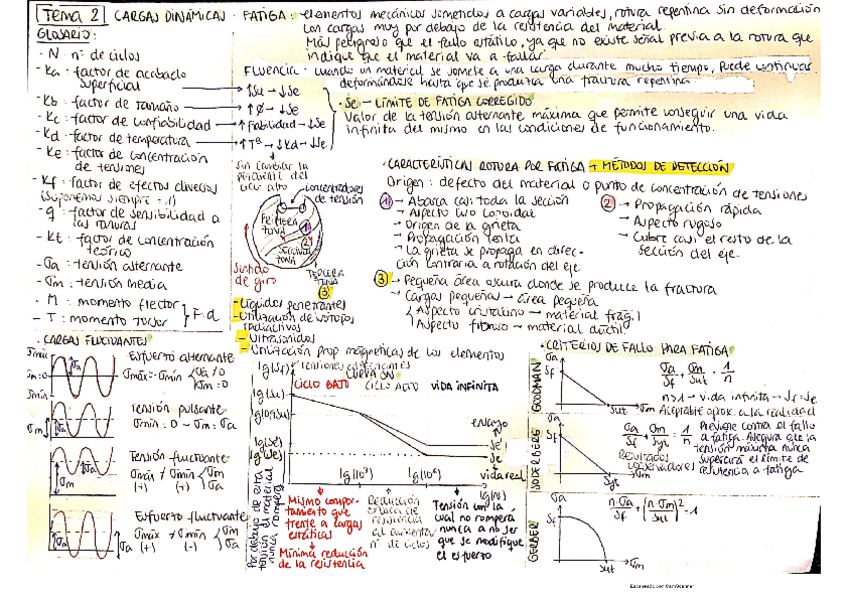 Tema 2 CARGAS DINÁMICAS · FATIGA: elementos mecánicos sometidos a cargas variables, rotura repentina sin deformación
con cargas muy por debajo de la resistencia del material.
Más peligroso que el fallo estático, ya que no existe señal previa a la rotura que
indique que el material va a fallar.
FLUENCIA: cuando un material se somete a una carga durante mucho tiempo, puede continuar
deformándose hasta que se produzca una fractura repentina
GLOSARIO:
· N: nº de ciclos
- Ka: factor de acabado
superficial
- Kb: factor de tamaño
- Kc: factor de confiabilidad
- Kd: factor de temperatura
- Ke: factor de concentración
de tensiones
- Kf: factor de efectos diversos
(suponemos siempre = 1)
- q: factor de sensibilidad a
las ranuras
- Kt: factor de concentración
teórico
- σa: tensión alternante
- σm: tensión media
· M: momento flector
- T: momento torsor
} F·d
↑Su → ↓Se
↑Ø → ↓Se
↑Fiabilidad → ↓Se
↑Tª → ↓Kd → ↓Se
· Se → LÍMITE DE FATIGA CORREGIDO
Valor de la tensión alternante máxima que permite conseguir una vida
infinita del mismo en las condiciones de funcionamiento.
sin cambiar la
concentradores
de tensión
PRIMERA
ZONA 1
2
SEGUNDA
ZONA
TERCERA
ZONA
3
Sentido
de giro
- Líquidos penetrantes
- Utilización de isótopos
radiactivos
- Ultrasonidos
- Utilización prop magnéticas de los elementos
· CARACTERÍSTICAS ROTURA POR FATIGA + MÉTODOS DE DETECCIÓN
Origen: defecto del material o punto de concentración de tensiones
1 - Abarca casi toda la sección
- Aspecto
- Origen de la grieta
- Propagación lenta
- La grieta se propaga en direc-
ción contraria a rotación del eje
2 - Propagación rápida
- Aspecto rugoso
- Cubre casi el resto de la
sección del eje.
3 - Pequeña área oscura donde se produce la fractura
- Cargas pequeñas → área pequeña
Aspecto cristalino → material frágil
Aspecto fibroso → material dúctil
· CARGAS FLUCTUANTES
σmáx
σm=0
σmín
σa
Esfuerzo alternante
σmáx = -σmín σa ≠ 0
σm = 0
σm
Tensión pulsante
σmín = 0 → σm = σa
σa
σm
Tensión fluctuante
σmáx ≠ σmín σm
(+) (+) σa
σa
σm
Esfuerzo fluctuante
σmáx ≠ σmín σm
(+) (-) σa
CURVA SN
lg(Sf)
CICLO BAJO CICLO ALTO VIDA INFINITA
lg(Su)
lg(0,9Su)
lg(Se')
lg(Se)
lg(10³) lg(10⁶) lg(N)
ensayo
Se'
Se
vida real
Por debajo de esta
tensión el material
nunca romperá
Mismo compor-
tamiento que
frente a cargas
estáticas
Mínima reducción
de la resistencia
Reducción
resistencia
al aumentar
nº de ciclos
Tensión con la
cual no romperá
nunca a no ser
que se modifique
el esfuerzo
· CRITERIOS DE FALLO PARA FATIGA
GOODMAN
σa
Sf
Sut σm
σa/Sf + σm/Sut = 1/n
n≥1 → vida infinita → Sf=Se
Aceptable aprox. a la realidad
SODERBERG
σa
Sf
Syt σm
σa/Sf + σm/Syt = 1/n
Resultados
conservadores
Previene contra el fallo
a fatiga. Asegura que la
tensión máxima nunca
superará el límite de
resistencia a fatiga
GERBER
σa
Sf
Sut σm
n·σa/Sf + (n·σm/Sut)² = 1
Escaneado con CamScanner